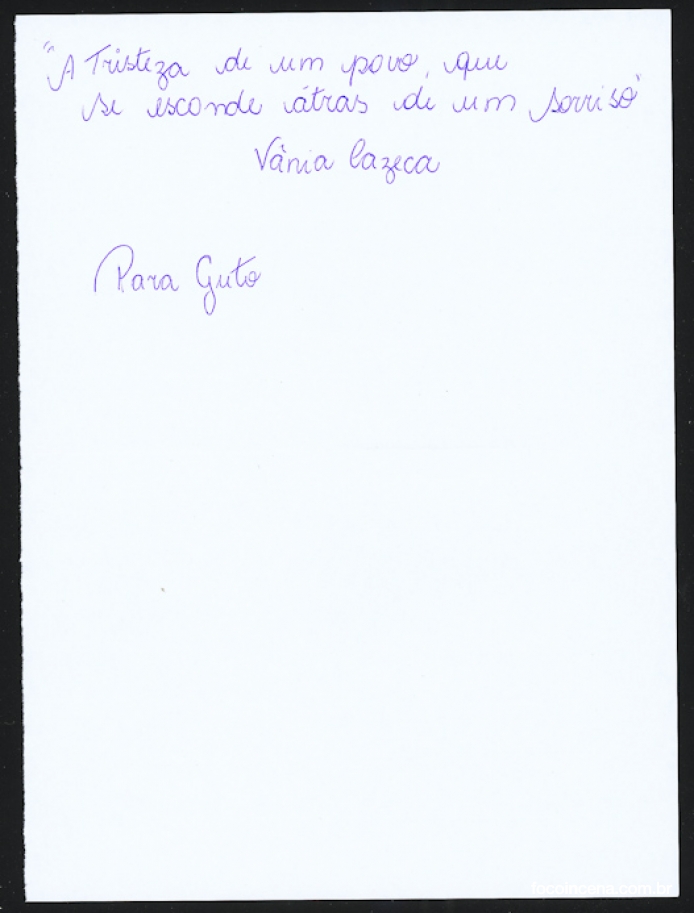 "A Tristeza de um povo, que
se esconde átras de um sorriso"
Vânia Cazeca
Para Guto
focoincena.com.br